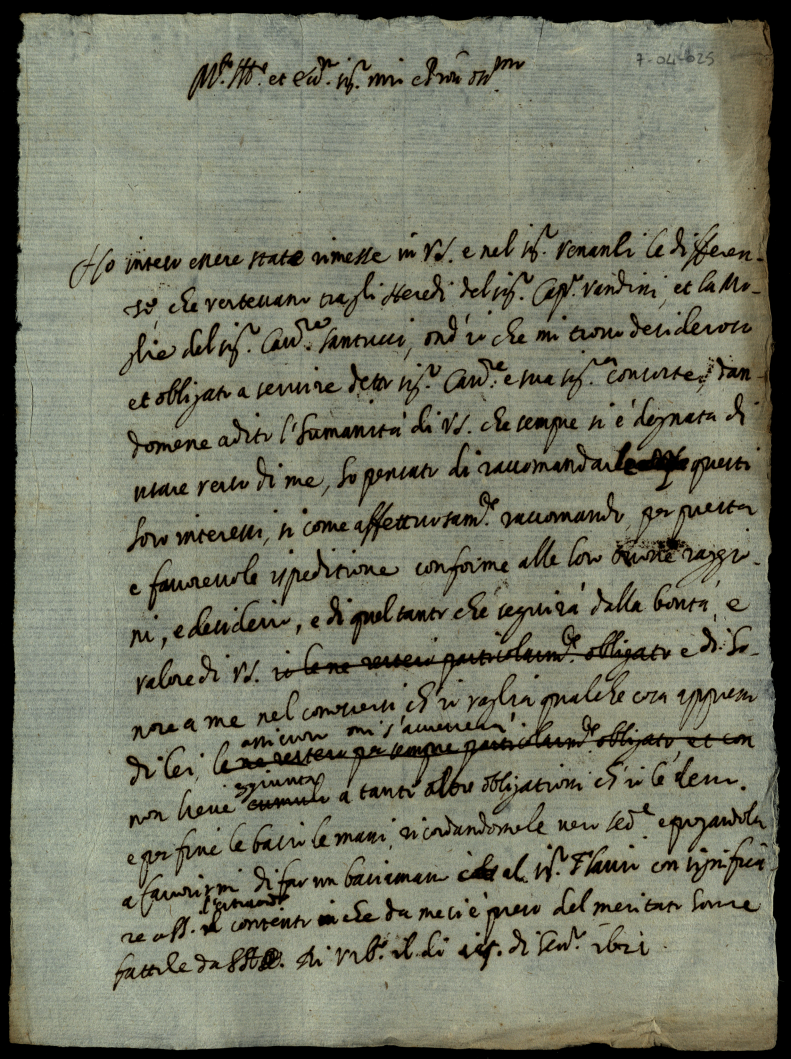 7-04-025
M.to Ill.re et Ecc.te sig.r mio et Pron oss.mo
Ho inteso essere state rimesse in VS. e nel sig.r Venanti le differen-
se, che vertevano tra gli Heredi del sig.r Cap.o Vandini, et la Mo-
glie del sig.r Cav.re Santucci, ond'io che mi trovo desideroso
et obligato a servire detto sig.r Cav.re e sua sig.ra consorte, dan-
domene adito l'humanità di VS. che sempre si è degnata di
usare verso di me, ho pensato di raccomandarle questi
loro interessi, si come affettuosam.te raccomando, per presta
e favorevole ispeditione conforme alle loro buone raggio-
ni, e desiderio, e di quel tanto che seguirà dalla bontà, e
valore di VS. io le ne resterò particolarm.te obligato e di ho-
nore a me nel conoscersi ch'io vaglia qualche cosa appresso
assicuro mi s'accrescerà
di lei, le ne resterò per sempre particolarm.te obligato et con
aggiunta
non lieve cumulo a tanti altre obligationi ch'io le devo.
e per fine le bacio le mani, ricordandomele vero ser.re e pregandola
a favorirmi di far un baciamano al sig.r Flavio con significa-
re a SS. il contento che da me si è preso del meritato honore
fattile da Di Urb.o il di di Gen.o 1621